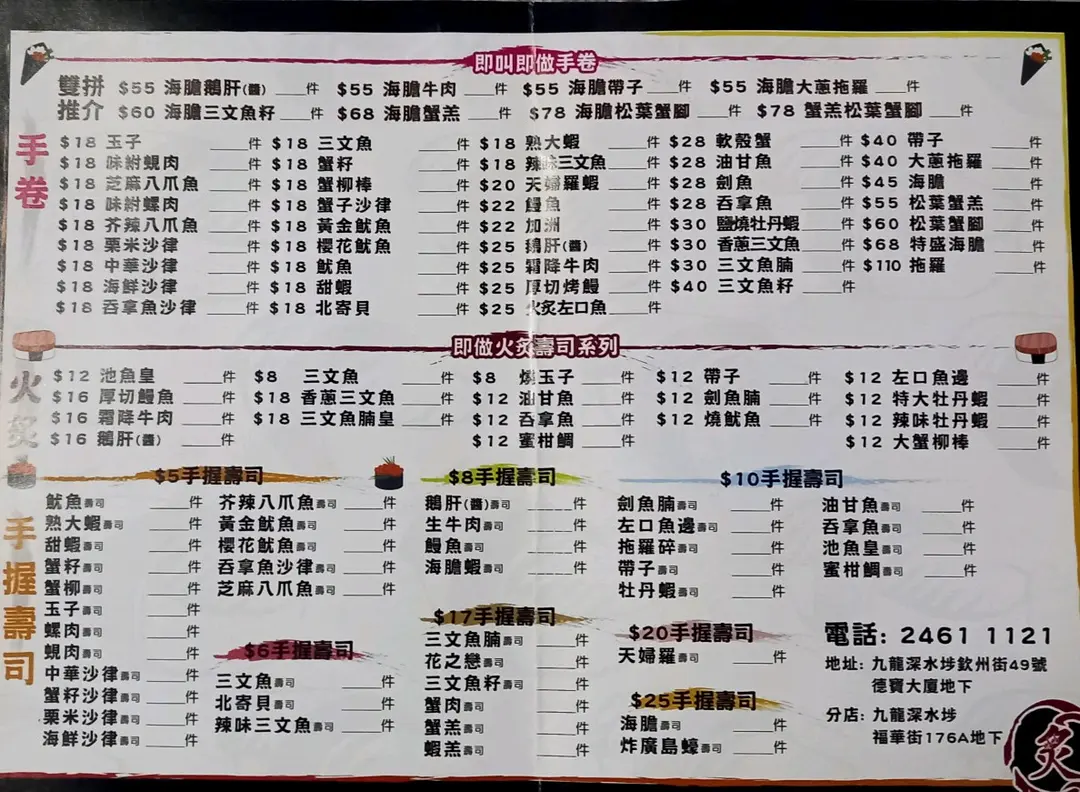 即叫即做手卷
雙拼 $55 海膽鵝肝(醬) ___件 $55 海膽牛肉 ___件 $55 海膽帶子 ___件 $55 海膽大蔥拖羅 ___件
推介 $60 海膽三文魚籽 ___件 $68 海膽蟹羔 ___件 $78 海膽松葉蟹腳 ___件 $78 蟹羔松葉蟹腳 ___件
手卷
$18 玉子 ___件 $18 三文魚 ___件 $18 熟大蝦 ___件 $28 軟殼蟹 ___件 $40 帶子 ___件
$18 味紨蜆肉 ___件 $18 蟹籽 ___件 $18 辣味三文魚 ___件 $28 油甘魚 ___件 $40 大蔥拖羅 ___件
$18 芝麻八爪魚 ___件 $18 蟹柳棒 ___件 $20 天婦羅蝦 ___件 $28 劍魚 ___件 $45 海膽 ___件
$18 味紨螺肉 ___件 $18 蟹子沙律 ___件 $22 鰻魚 ___件 $28 吞拿魚 ___件 $55 松葉蟹羔 ___件
$18 芥辣八爪魚 ___件 $18 黃金魷魚 ___件 $22 加洲 ___件 $30 鹽燒牡丹蝦 ___件 $60 松葉蟹腳 ___件
$18 粟米沙律 ___件 $18 櫻花魷魚 ___件 $25 鵝肝(醬) ___件 $30 香蔥三文魚 ___件 $68 特盛海膽 ___件
$18 中華沙律 ___件 $18 魷魚 ___件 $25 霜降牛肉 ___件 $30 三文魚腩 ___件 $110 拖羅 ___件
$18 海鮮沙律 ___件 $18 甜蝦 ___件 $25 厚切烤鰻 ___件 $40 三文魚籽 ___件
$18 吞拿魚沙律 ___件 $18 北寄貝 ___件 $25 火炙左口魚 ___件
即做火炙壽司系列
火炙
$12 池魚皇 ___件 $8 三文魚 ___件 $8 燒玉子 ___件 $12 帶子 ___件 $12 左口魚邊 ___件
$16 厚切鰻魚 ___件 $18 香蔥三文魚 ___件 $12 油甘魚 ___件 $12 劍魚腩 ___件 $12 特大牡丹蝦 ___件
$16 霜降牛肉 ___件 $18 三文魚腩皇 ___件 $12 吞拿魚 ___件 $12 燒魷魚 ___件 $12 辣味牡丹蝦 ___件
$16 鵝肝(醬) ___件 $12 蜜柑鯛 ___件 $12 大蟹柳棒 ___件
手握壽司
$5手握壽司
魷魚壽司 ___件 芥辣八爪魚壽司 ___件
熟大蝦壽司 ___件 黃金魷魚壽司 ___件
甜蝦壽司 ___件 櫻花魷魚壽司 ___件
蟹籽壽司 ___件 吞拿魚沙律壽司 ___件
蟹柳壽司 ___件 芝麻八爪魚壽司 ___件
玉子壽司 ___件
螺肉壽司 ___件
蜆肉壽司 ___件
中華沙律壽司 ___件
蟹籽沙律壽司 ___件
粟米沙律壽司 ___件
海鮮沙律壽司 ___件
$6手握壽司
三文魚壽司 ___件
北寄貝壽司 ___件
辣味三文魚壽司 ___件
$8手握壽司
鵝肝(醬)壽司 ___件
生牛肉壽司 ___件
鰻魚壽司 ___件
海膽蝦壽司 ___件
$17手握壽司
三文魚腩壽司 ___件
花之戀壽司 ___件
三文魚籽壽司 ___件
蟹肉壽司 ___件
蟹羔壽司 ___件
蝦羔壽司 ___件
$10手握壽司
劍魚腩壽司 ___件 油甘魚壽司 ___件
左口魚邊壽司 ___件 吞拿魚壽司 ___件
拖羅碎壽司 ___件 池魚皇壽司 ___件
帶子壽司 ___件 蜜柑鯛壽司 ___件
牡丹蝦壽司 ___件
$20手握壽司
天婦羅壽司 ___件
$25手握壽司
海膽壽司 ___件
炸廣島蠔壽司 ___件
電話: 2461 1121
地址: 九龍深水埗欽州街49號
德寶大廈地下
分店: 九龍深水埗
福華街176A地下
炙